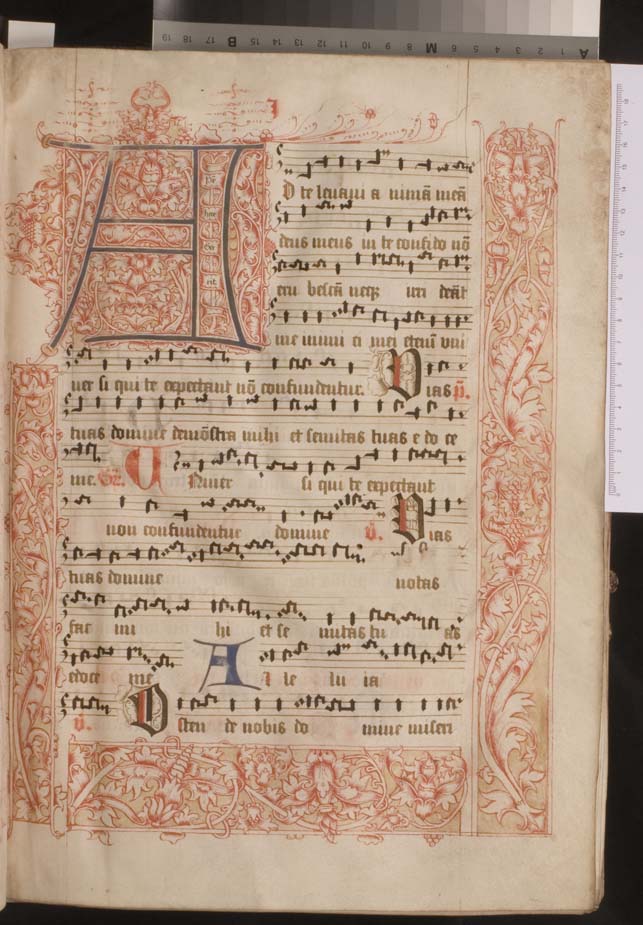 AD te levavi a nimā meā
deus meus in te confido nō
eru bescā neqȝ irri deāt
me inimi ci mei etem̄ vni
uer si qui te expectant nō confundentur. Vias p̄.
tuas domine demōstra mihi et semitas tuas e do ce
me. Gr̄. Univer si qui te expectant
non confundentur domine v̄. Vias
tuas domine notas
fac mi hi et se mitas tu as
edoce me Al le lu ia
v̄. Osten de nobis do mine miseri